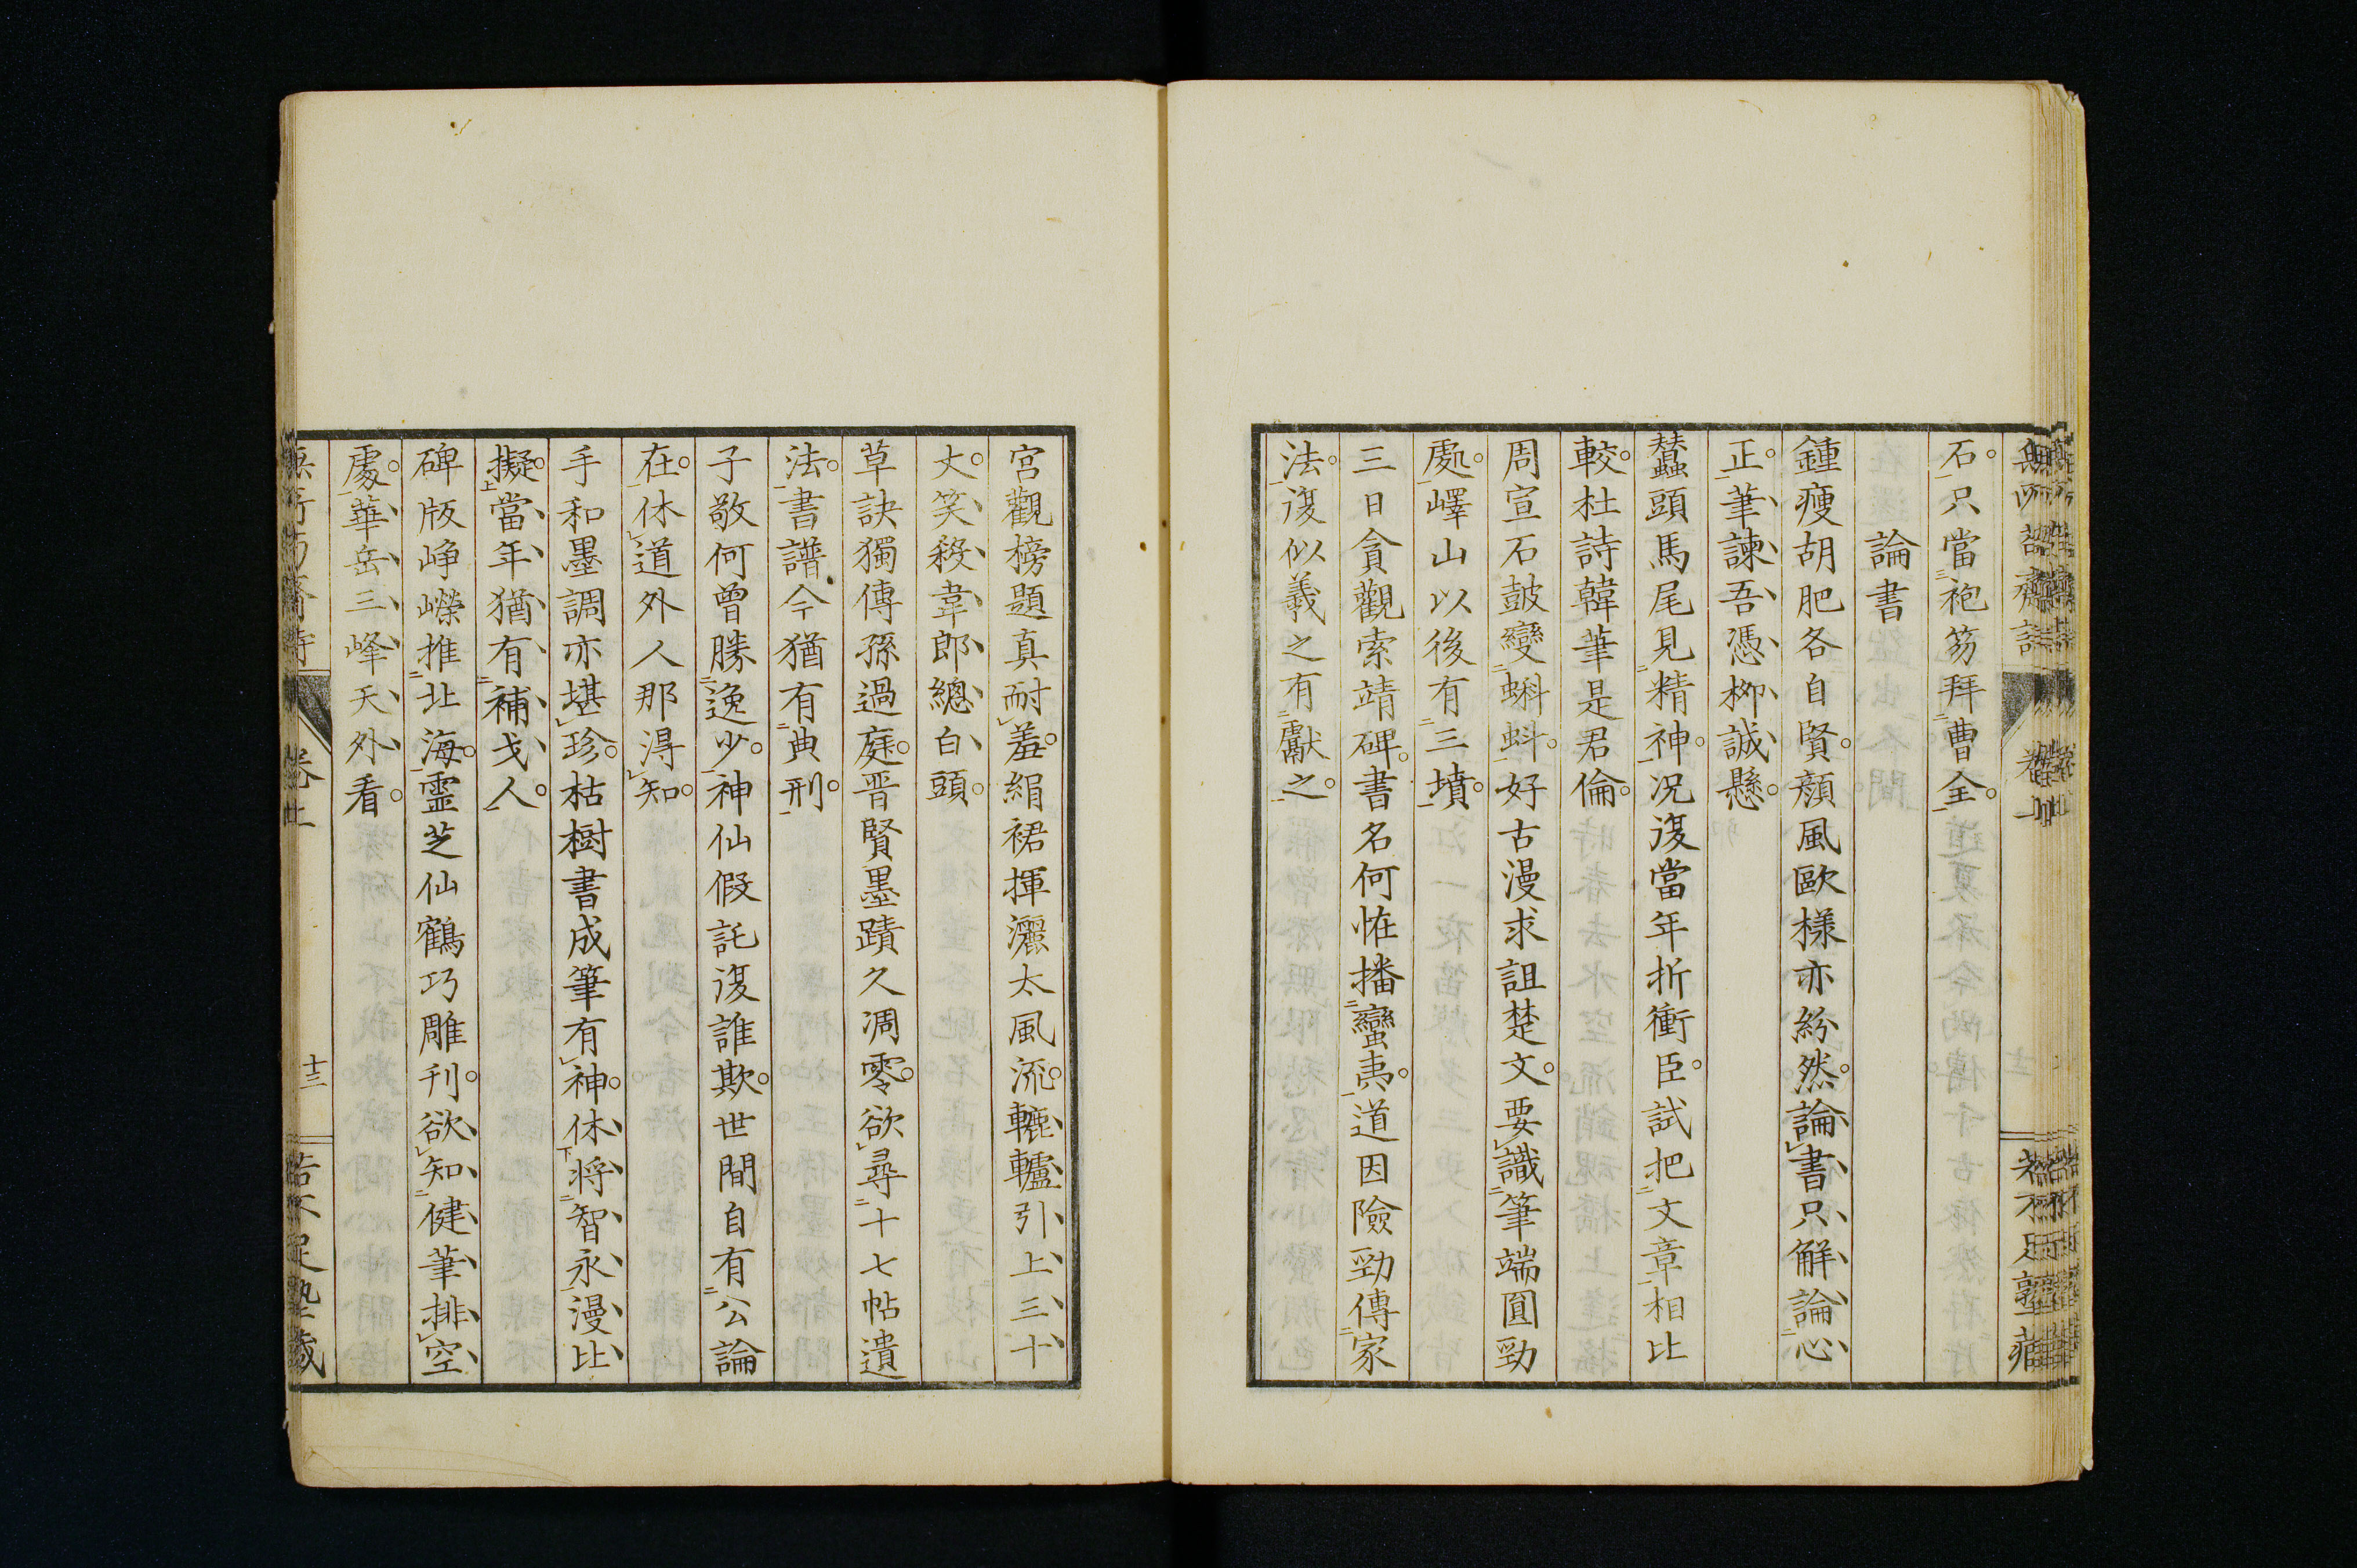 石。只當袍笏拜曹全。
論書
鍾瘦胡肥各自賢。顏風歐樣亦紛然。論書只解論心
正。筆諫吾憑柳誠懸。
蠶頭馬尾見精神。況復當年折衝臣。試把文章相比
較。杜詩韓筆是君倫。
周宣石皷變蝌蚪。好古漫求詛楚文。要識筆端圓勁
處。嶧山以後有三墳。
三日貪觀索靖碑。書名何恠播蠻夷。道因險勁傳家
法。復似羲之有獻之。
宮觀榜題真耐羞。絹裙揮灑太風流。轆轤引上三十
丈。笑殺韋郎總白頭。
草訣獨傳孫過庭。晋賢墨蹟久凋零。欲尋十七帖遺
法。書譜今猶有典刑。
子敬何曾勝逸少。神仙假託復誰欺。世間自有公論
在。休道外人那淂知。
手和墨調亦堪珍。枯樹書成筆有神。休將智永漫比
擬。當年猶有補戈人。
碑版崢嶸推北海。靈芝仙鶴巧雕刊。欲知健筆排空
處。華岳三峰天外看。
卷上
十三